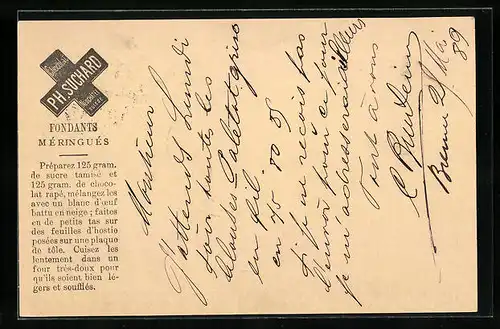 Chocolat
PH. SUCHARD
Neuchâtel
SUISSE
FONDANTS
MÉRINGUÉS
Préparez 125 gram.
de sucre tamisé et
125 gram. de choco-
lat rapé, mélangez les
avec un blanc d'œuf
battu en neige; faites
en de petits tas sur
des feuilles d'hostie
posées sur une plaque
de tôle. Cuisez les
lentement dans un
four très-doux pour
qu'ils soient bien lé-
gers et soufflés.
Monsieur
J'attends Lundi
soir toutes les
blouses Paletot grise
en fil
en 75 80 85
Si je ne reçois pas
l'envoi pour ce jour
je m'adresserai ailleurs
Tout à vous
Bienne 2 Mai
89